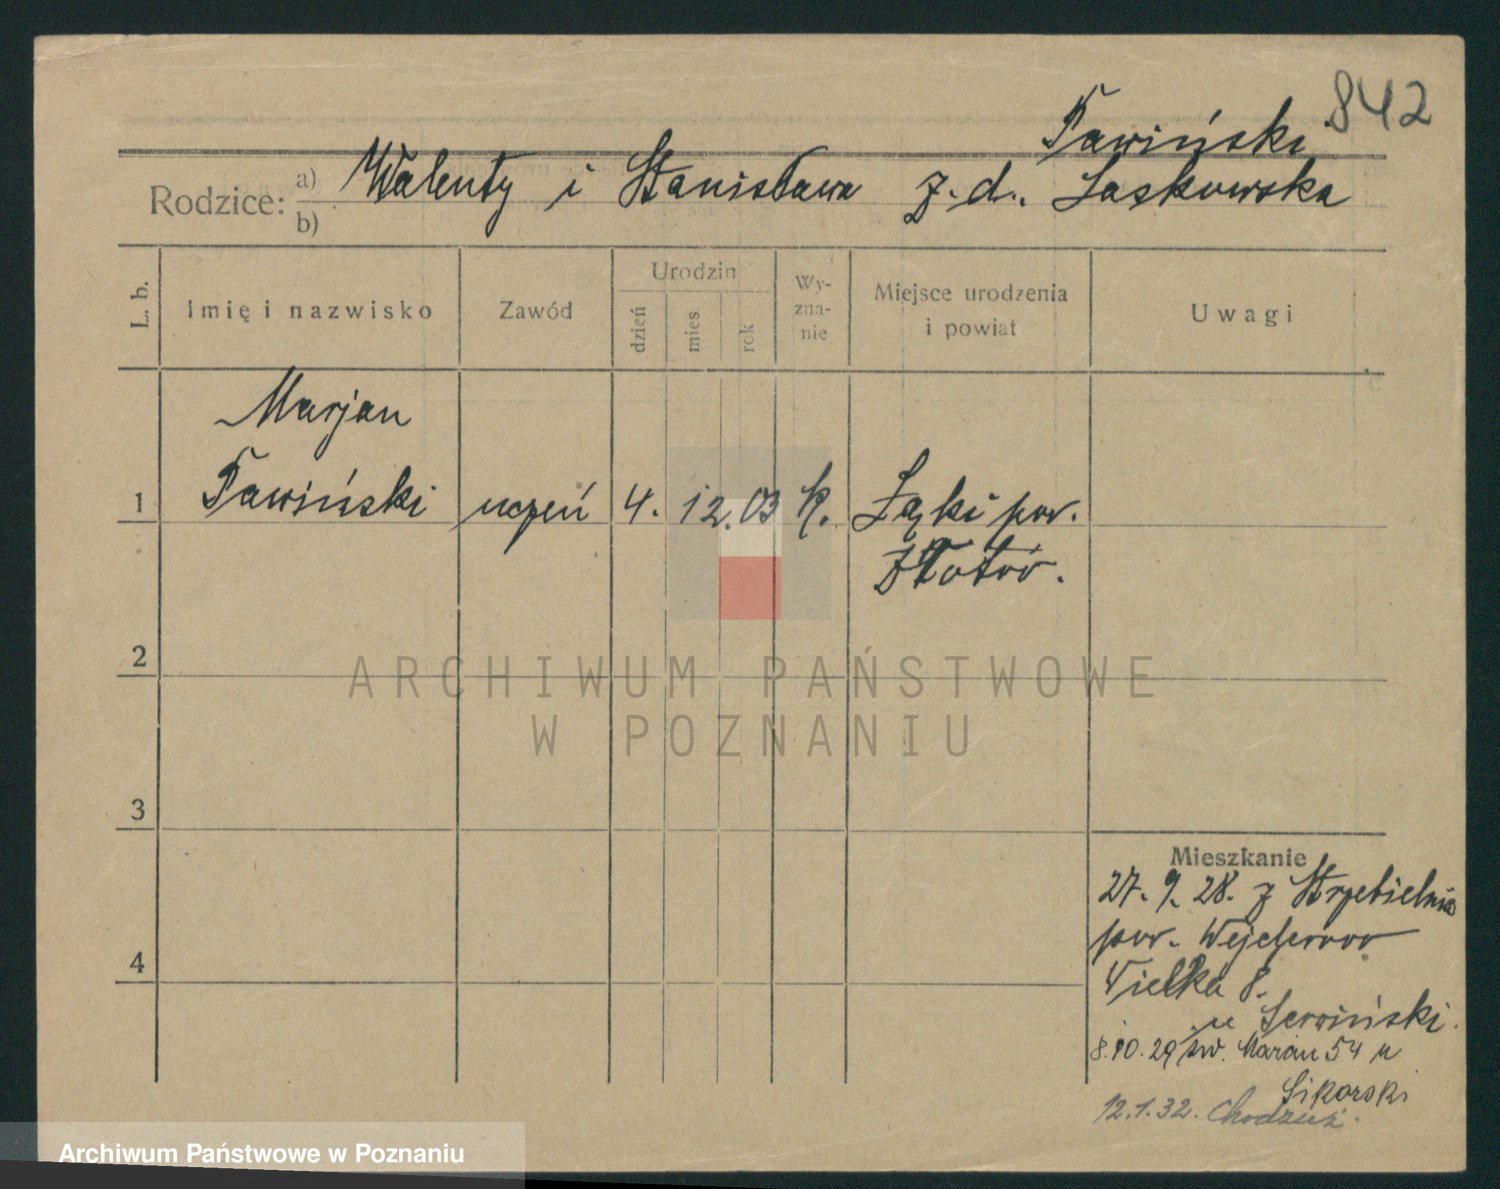 842
Tawiński
Rodzice: a) Walenty i Stanisława z. d. Laskowska
b)
L. b. Imię i nazwisko Zawód Urodzin dzień mies rok Wy-zna-nie Miejsce urodzenia i powiat Uwagi
Marjan
1 Tawiński uczeń 4. 12. 03 k. Łąki pow.
Złotów.
2
ARCHIWUM PAŃSTWOWE
W POZNANIU
3
Mieszkanie
27. 9. 28. z Strzebielnia
pow. Wejcherowo
4
Wielka 8.
u
8.10.29 św. Marcin 54 u
Sikorski
12.1.32. Chodzież.
Archiwum Państwowe w Poznaniu